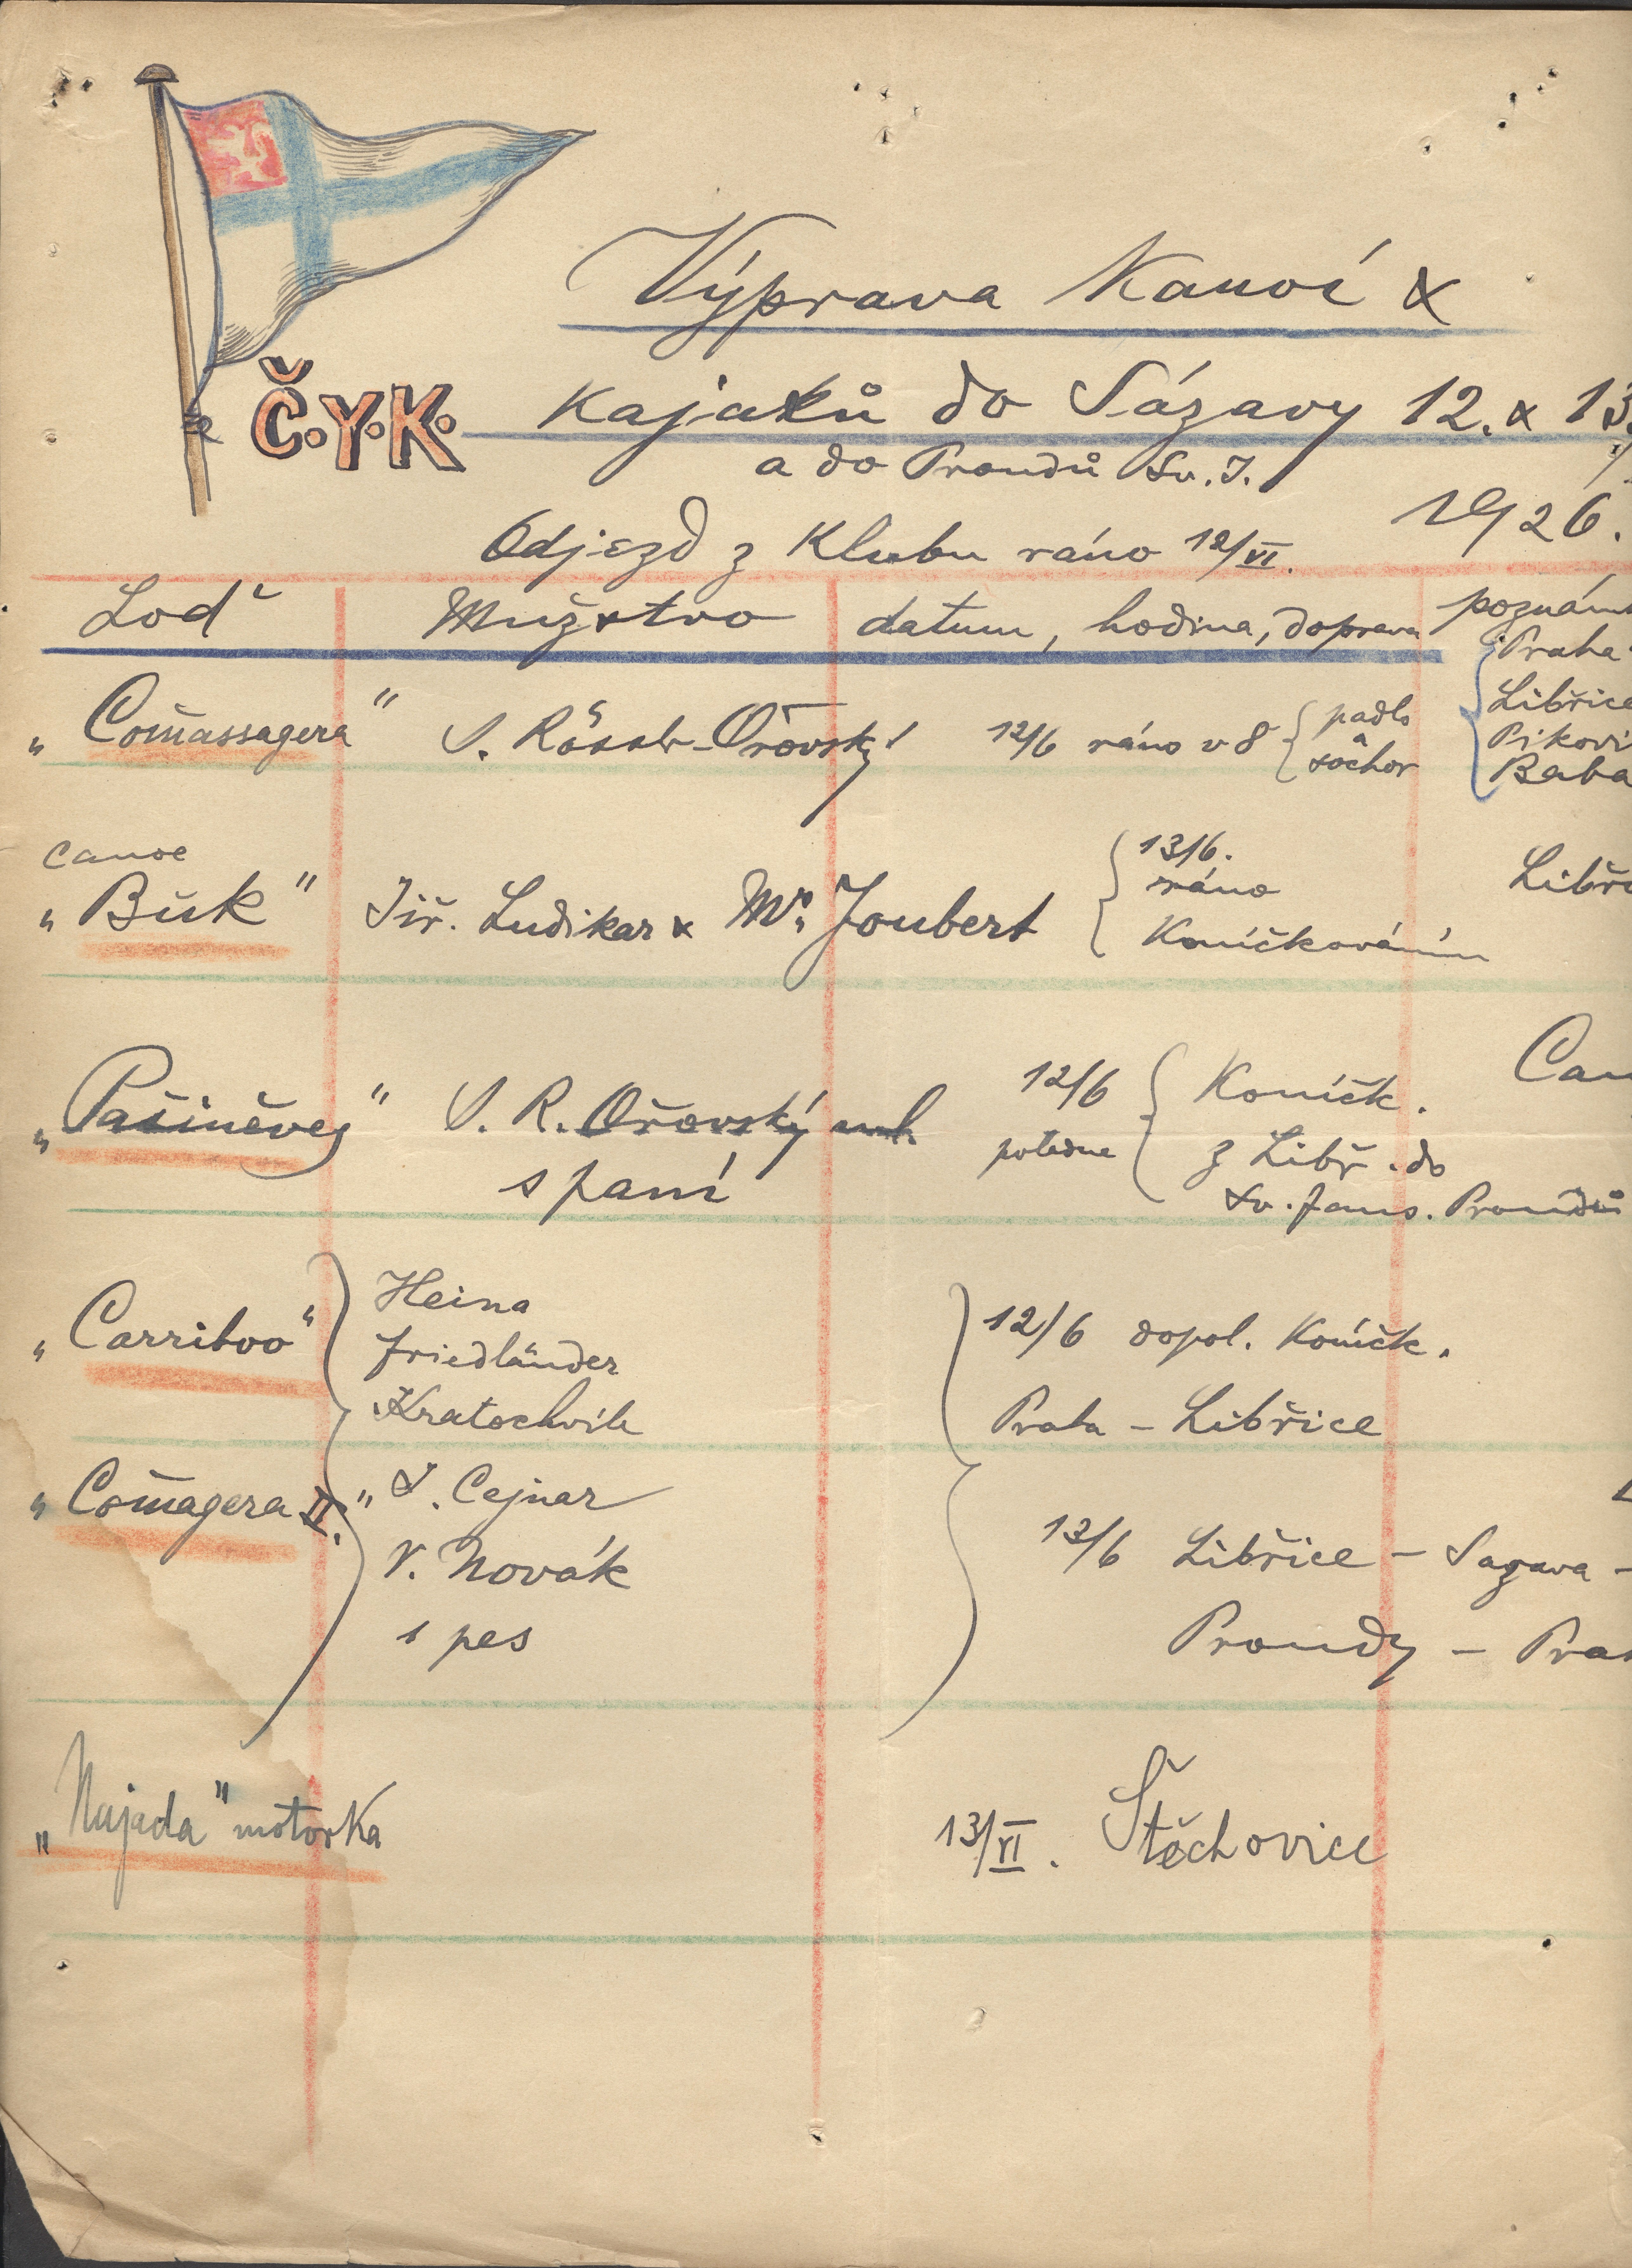 Výprava Kanoí &
Č.Y.K. Kajaků do Sázavy 12. & 13.
a do Proudů Sv. J.
1926.
Odjezd z Klubu ráno 12/VI.
Loď Mužstvo datum, hodina, doprava poznám
„Com̄assagera“ J. Rössler-Ořovský 12/6 ráno v 8 { padlo
a
sochor
Praha
Libřice
Pikovi
Baba
canoe
„Buk“ Jiř. Ludikar & Mr. Joubert
13/6.
ráno
Koníčkováním
Libři
„Pašiněvej“ J. R. Ořovský ml.
s paní
12/6
poledne
Koníčk.
z Libř. do
Sv. Jans. Proudů
Can
„Carriboo“
Heina
Friedländer
Kratochvíle
12/6 dopol. Koníčk.
Praha – Libřice
„Com̄agera II.“ J. Cejnar
V. Novák
1 pes
13/6 Libřice – Sazava –
Proudy – Pra
„Najada“ motorka 13/VI. Štěchovice